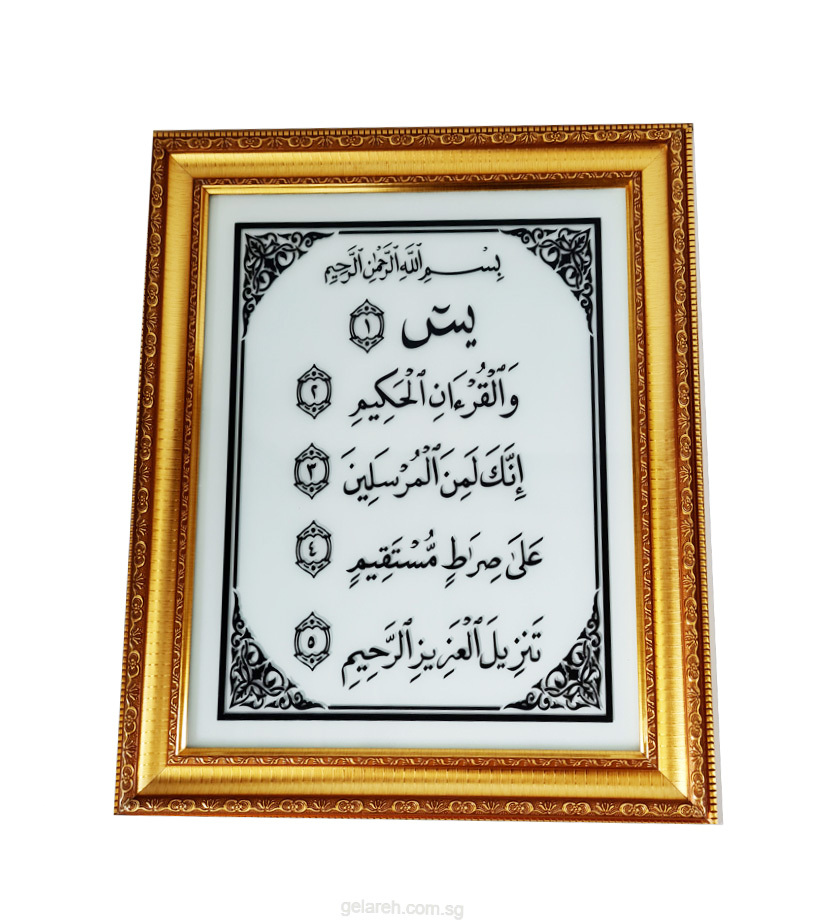 بِسْمِ ٱللَّهِ ٱلرَّحْمَٰنِ ٱلرَّحِيمِ
يسٓ ١
وَٱلْقُرْءَانِ ٱلْحَكِيمِ ٢
إِنَّكَ لَمِنَ ٱلْمُرْسَلِينَ ٣
عَلَىٰ صِرَٰطٍ مُّسْتَقِيمٍ ٤
تَنزِيلَ ٱلْعَزِيزِ ٱلرَّحِيمِ ٥
gelareh.com.sg